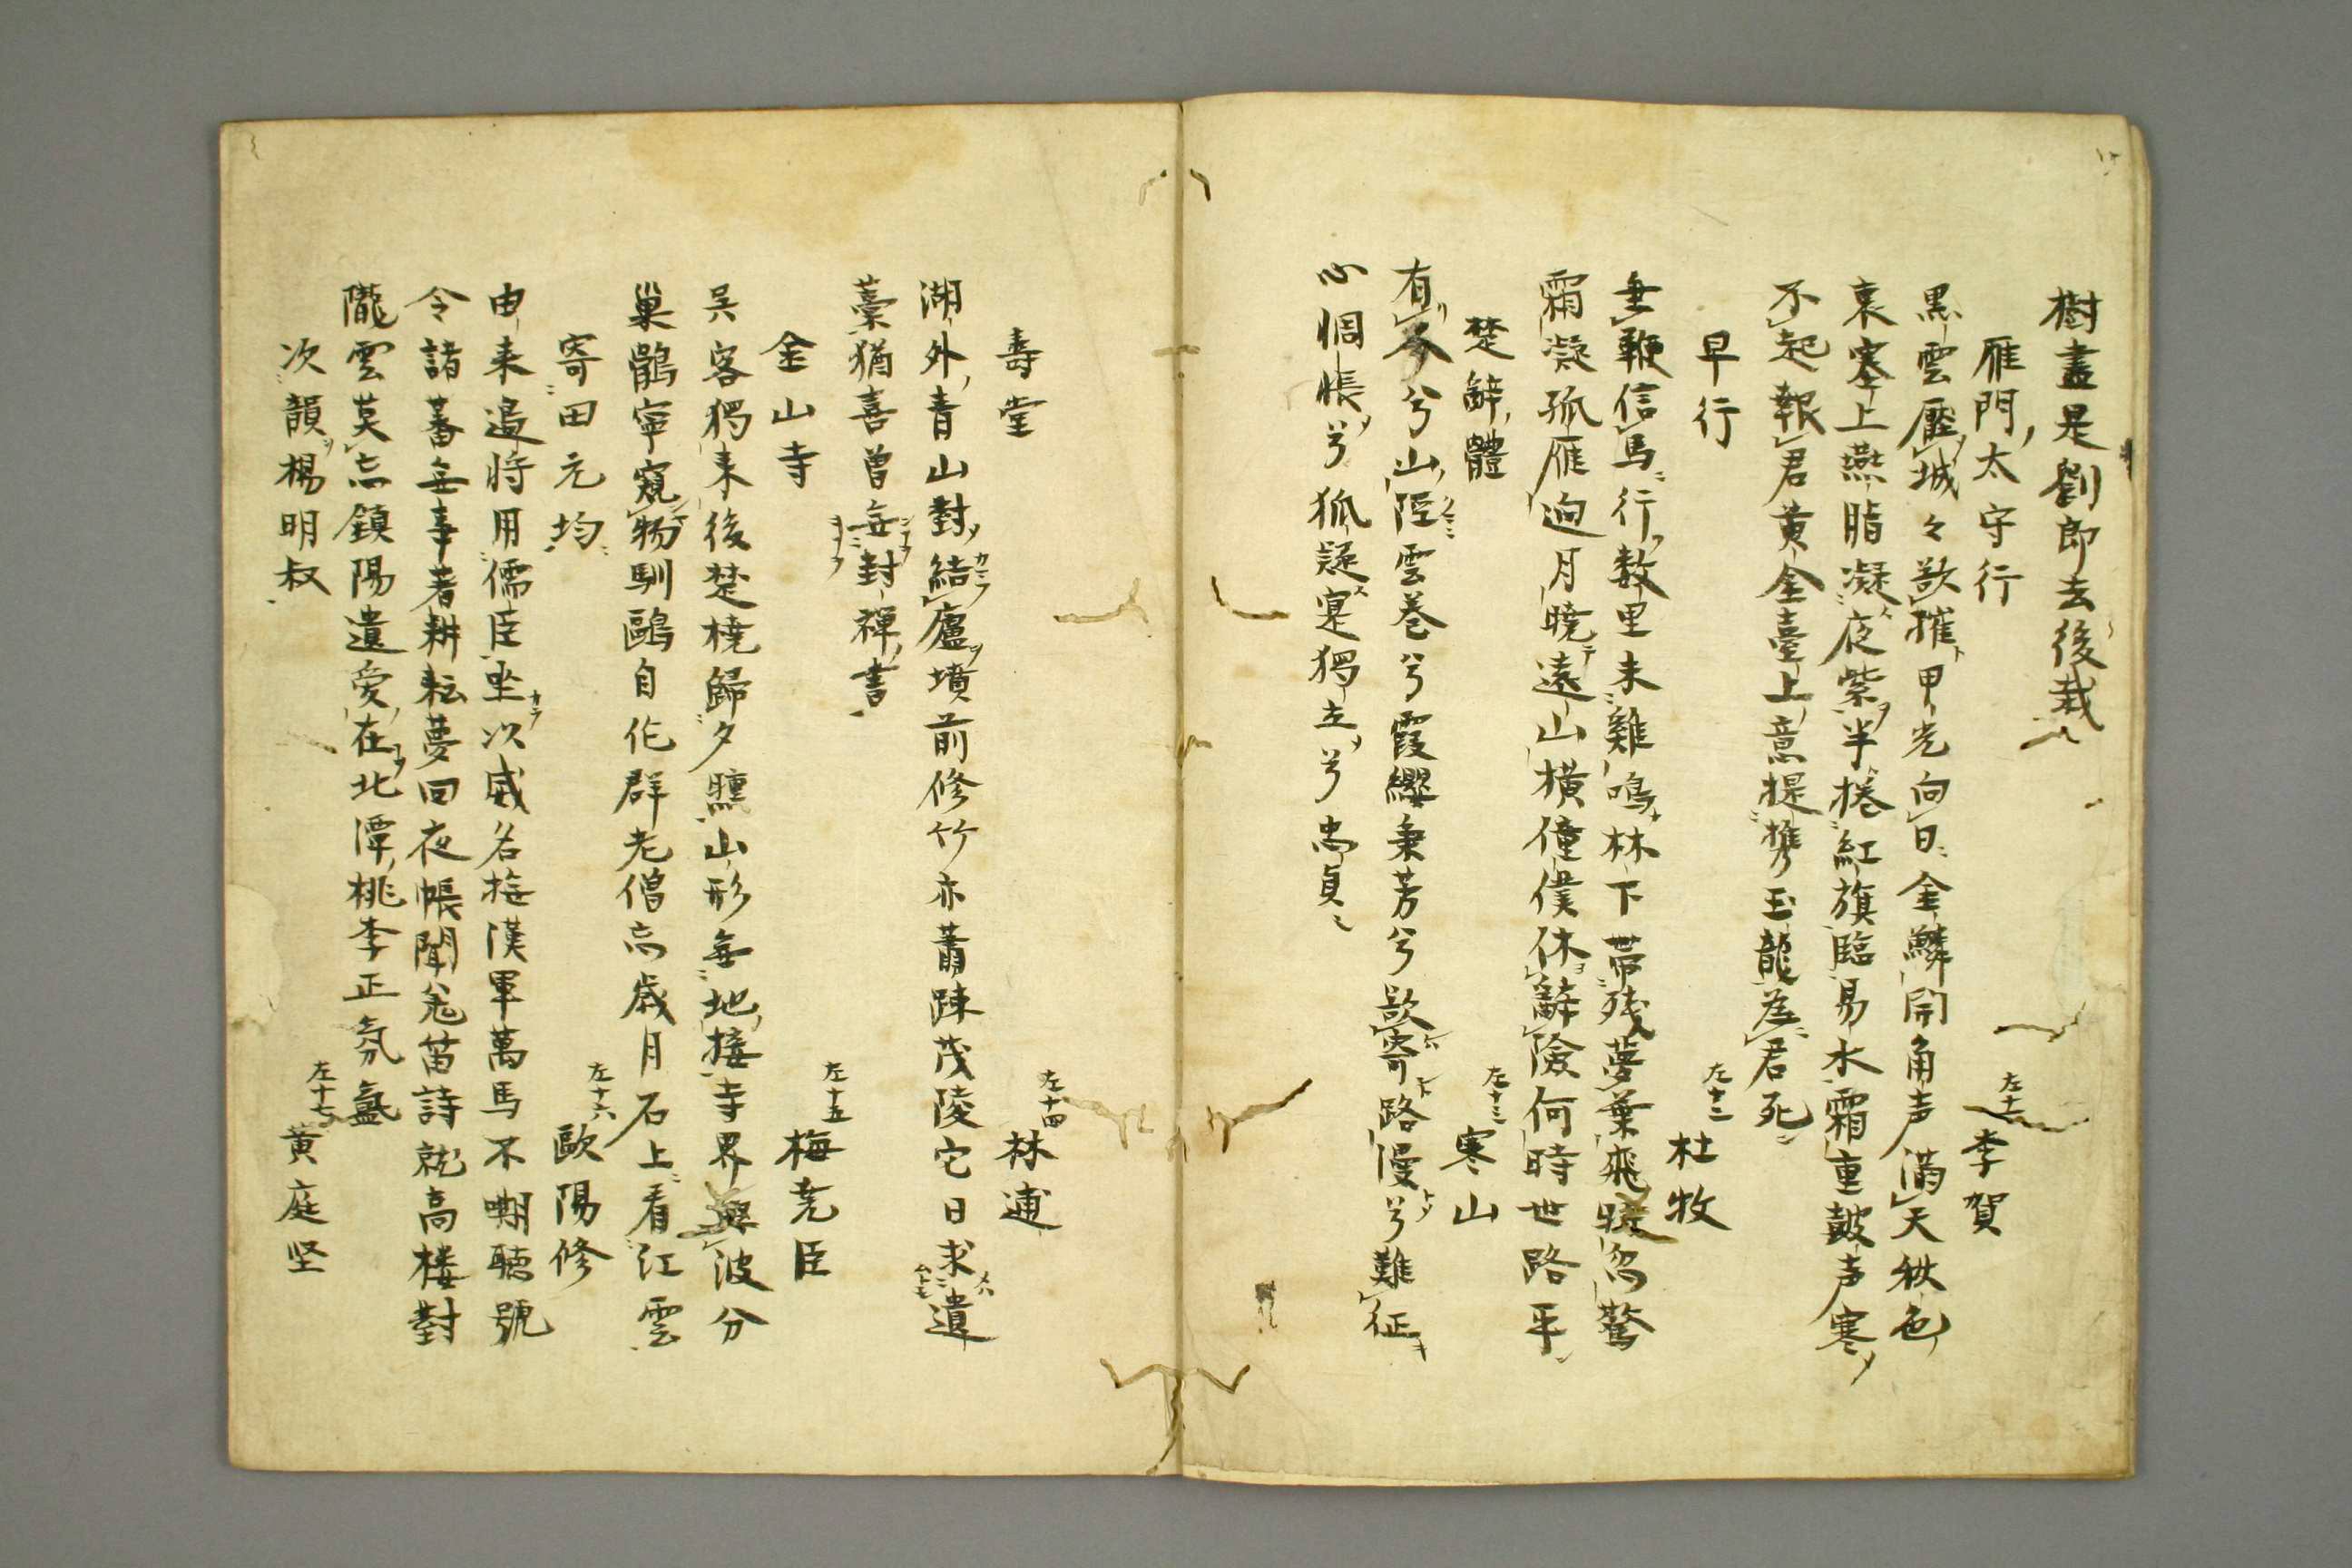 樹盡是劉郎去後栽
雁門太守行　左十一　李賀
黒雲壓城々欲摧甲光向日金鱗開角声満天秋色
裏塞上燕脂凝夜紫半捲紅旗臨易水霜重皷声寒
不起報君黄金臺上意提携玉龍為君死
早行　左十二　杜牧
垂鞭信馬行数里未雞鳴林下帯残夢葉飛時忽驚
霜凝孤雁迥月暁遠山横僮僕休辞險何時世路平
楚辭體　左十三　寒山
有人兮山陘雲巻兮霞纓秉芳兮欲寄路漫兮難征
心惆悵兮狐疑蹇獨立兮忠貞
壽堂　左十四　林逋
湖外青山對結廬墳前修竹亦蕭踈茂陵它日求遺
藁猶喜曽無封禪書
金山寺　左十五　梅尭臣
呉客獨来後楚橈歸夕曛山形無地接寺界與波分
巣鶻寧窺物馴鷗自作群老僧忘歳月石上看江雲
寄田元均　左十六　歐陽修
由来邉将用儒臣坐以威名撫漢軍萬馬不嘶聴號
令諸蕃無事著耕耘夢回夜帳聞羗笛詩就高樓對
隴雲莫忘鎮陽遺愛在北潭桃李正氛氳
次韻楊明叔　左十七　黄庭坚